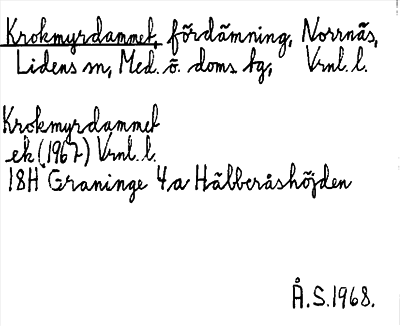 Krokmyrdammet, fördämning, Norrnäs,
Lidens sn, Med. ö. doms. tg, Vrnl. l.
Krokmyrdammet
ek (1967) Vrnl. l.
18H Graninge 4a Hälberåshöjden
Å.S.1968.